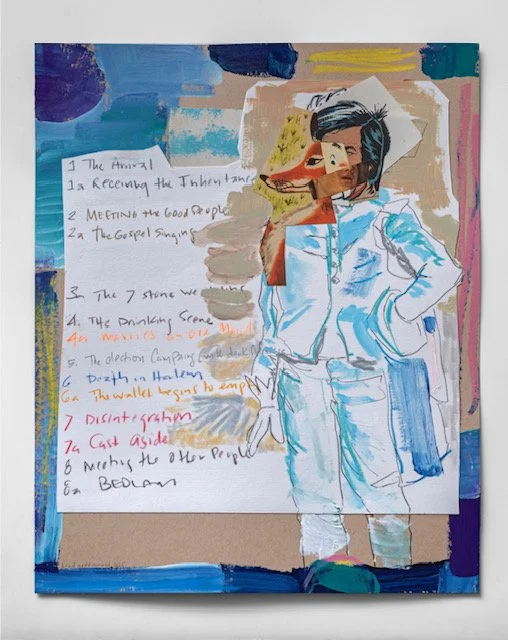 1 The Arrival
1a Receiving the Inheritance
2 MEETING the Good People
2a The Gospel Singing
The 7 stone
4. THe Drinking Scene
4a MARRIES
5. The election Campaing
6 Death in Harlem
6a The wallet begins to empt
7 Disintegration
7a Cast Aside
8 Meeting the Other People
8a BEDLAM